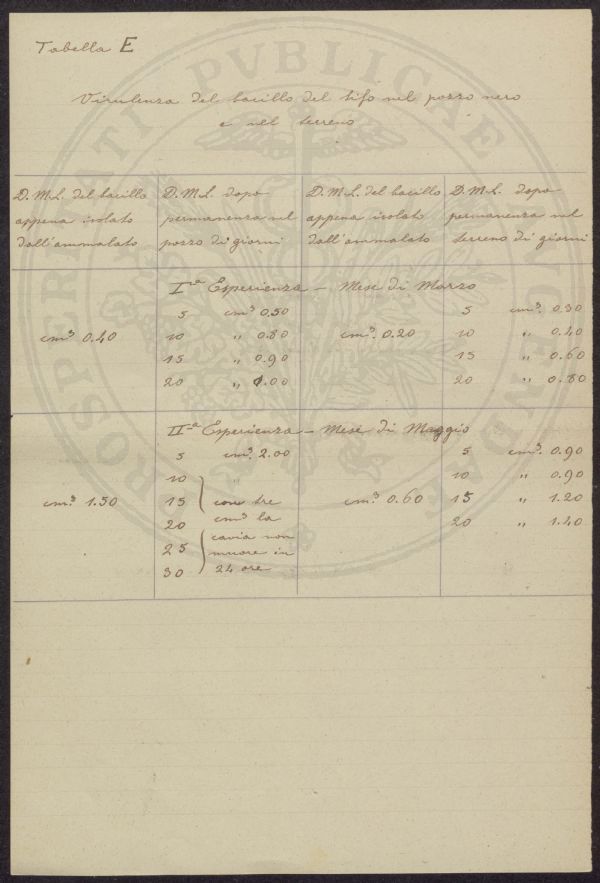 Tabella E
Virulenza del bacillo del tifo nel pozzo nero
e nel terreno
D.M.L. del bacillo
appena isolato
dall'ammalato
D.M.L. dopo
permanenza nel
pozzo di giorni
D.M.L. del bacillo
appena isolato
dall'ammalato
D.M.L. dopo
permanenza nel
terreno di giorni
Iª Esperienza – Mese di Marzo
cm³ 0.40
5 cm³ 0.50
10 " 0.80
15 " 0.90
20 " 1.00
cm³. 0.20
5 cm³. 0.30
10 " 0.40
15 " 0.60
20 " 0.80
IIª Esperienza – Mese di Maggio
cm³ 1.50
5 cm³ 2.00
10 "
15 con tre
20 cm³ la
cavia non
25 muore in
30 24 ore
cm³. 0.60
5 cm³. 0.90
10 " 0.90
15 " 1.20
20 " 1.40
PROSPERITATI PVBLICAE